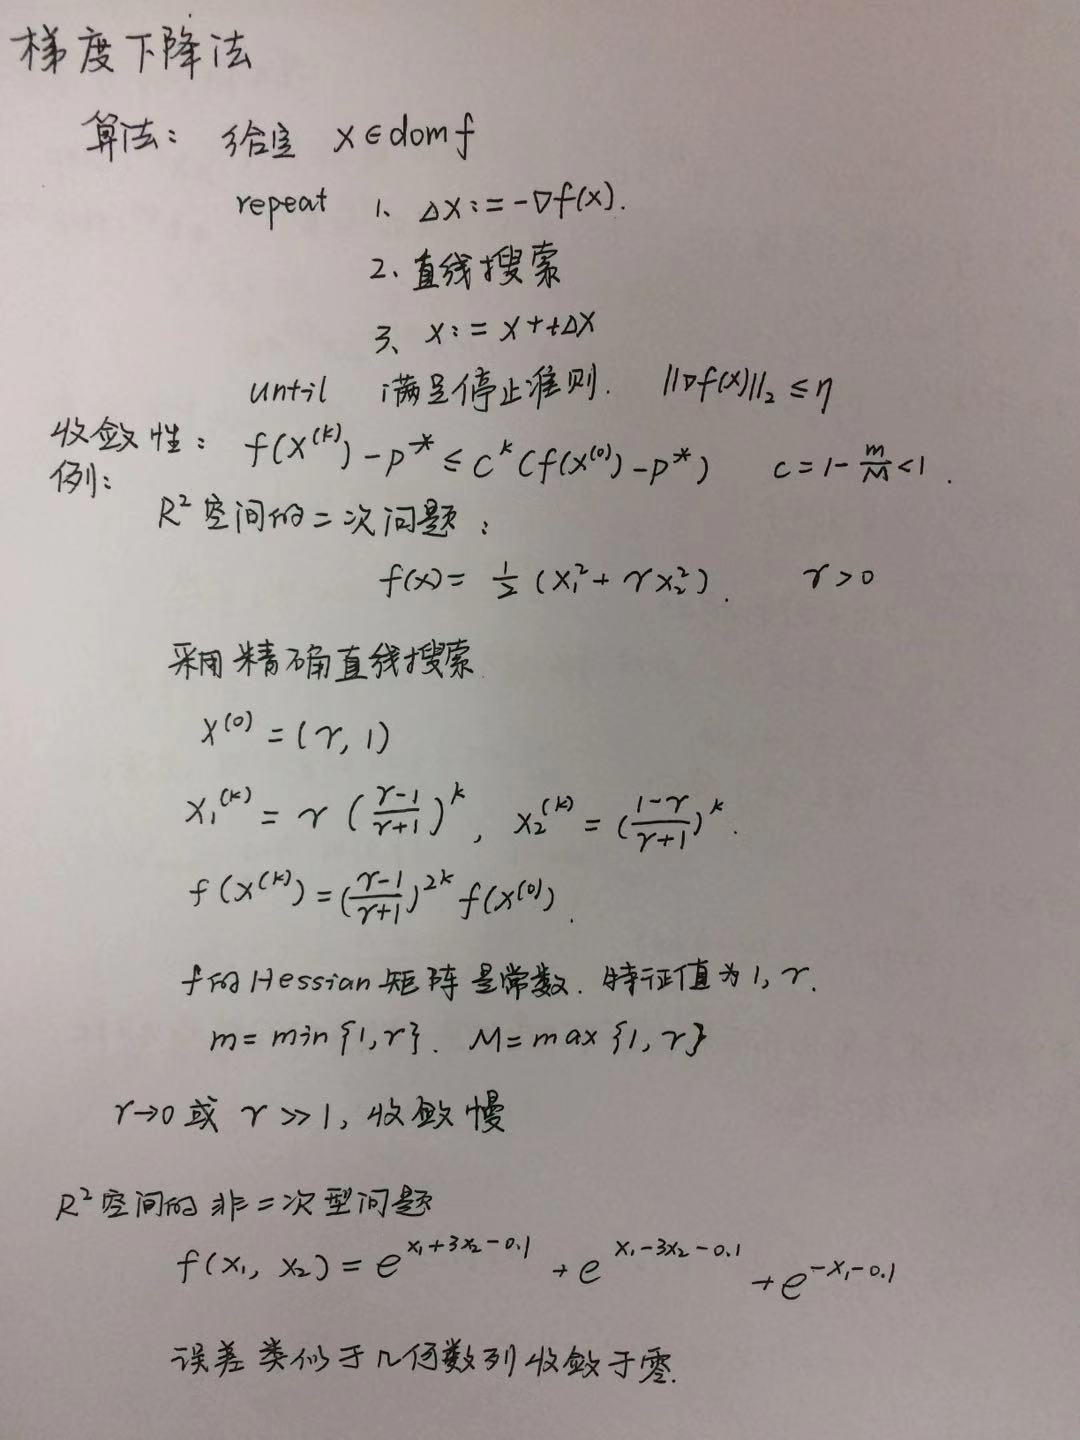 梯度下降法
算法: 给定 x∈dom f
repeat 1、Δx:=-∇f(x).
2、直线搜索
3、x:=x+tΔx
until 满足停止准则. ||∇f(x)||₂ ≤ η
收敛性: f(x^(k))-p^* ≤ c^k(f(x^(0))-p^*) c=1-m/M<1.
例:
R²空间的二次问题:
f(x)=1/2(x₁²+γx₂²). γ>0
采用精确直线搜索.
x^(0)=(γ, 1)
x₁^(k)=γ((γ-1)/(γ+1))^k, x₂^(k)=((1-γ)/(γ+1))^k.
f(x^(k))=((γ-1)/(γ+1))^2k f(x^(0)).
f的Hessian矩阵是常数. 特征值为1, γ.
m=min{1,γ}. M=max{1,γ}
γ→0或γ≫1, 收敛慢
R²空间的非二次型问题
f(x₁, x₂)=e^(x₁+3x₂-0.1)+e^(x₁-3x₂-0.1)+e^(-x₁-0.1)
误差类似于几何数列收敛于零.